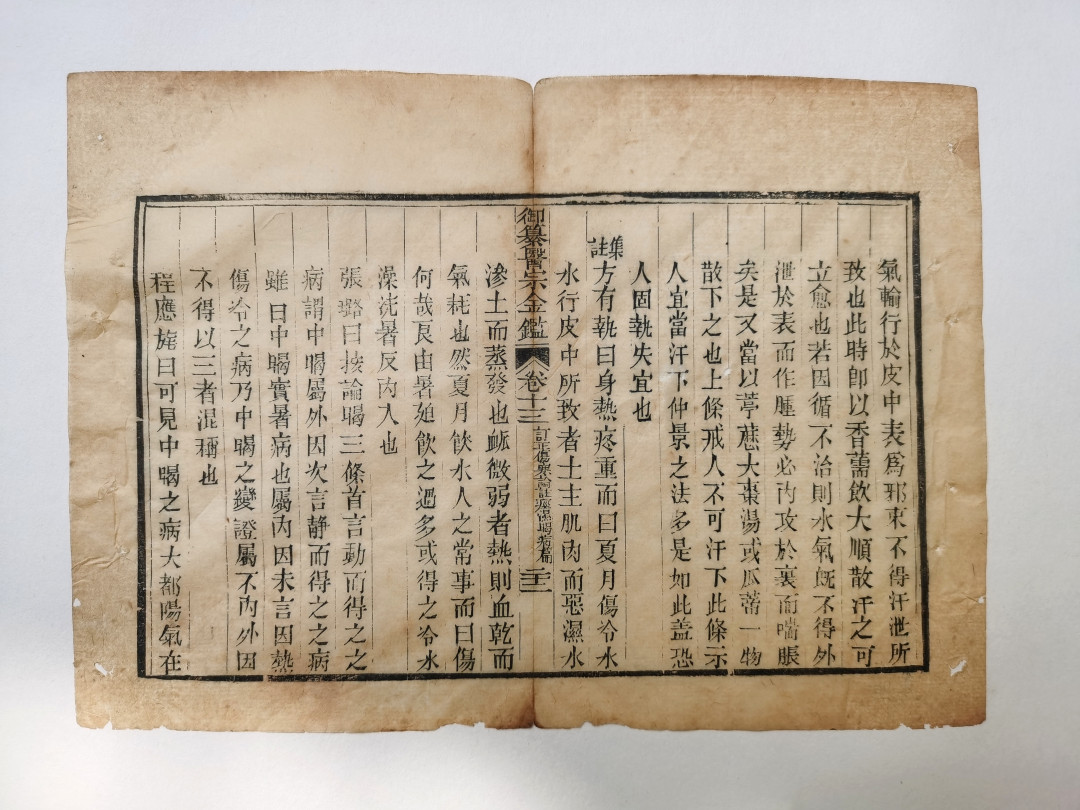 氣輸行於皮中表爲邪束不得汗泄所
致也此時卽以香薷飲大順散汗之可
立愈也若因循不治則水氣旣不得外
泄於表而作腫勢必內攻於裏而喘脹
矣是又當以葶藶大棗湯或瓜蒂一物
散下之也上條戒人不可汗下此條示
人宜當汗下仲景之法多是如此蓋恐
人固執失宜也
集註方有執曰身熱疼重而曰夏月傷冷水
水行皮中所致者土主肌肉而惡濕水
御纂醫宗金鑑
卷十三
訂正傷寒論註痙濕暍病篇
滲土而蒸發也脈微弱者熱則血乾而
氣耗也然夏月飲水人之常事而曰傷
何哉良由暑迫飲之過多或得之冷水
澡洗暑反內入也
張璐曰按論暍三條首言動而得之之
病謂中暍屬外因次言靜而得之之病
雖曰中暍實暑病也屬內因末言因熱
傷冷之病乃中暍之變證屬不內外因
不得以三者混稱也
程應旄曰可見中暍之病大都陽氣在